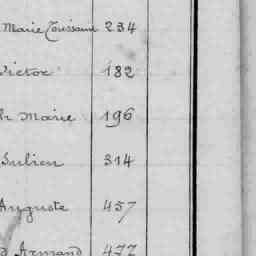 Marie Toussaint 234
Victor 182
Marie 196
Julien 314
Auguste 457
Armand 477